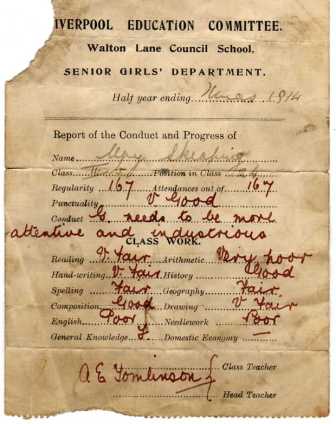 IVERPOOL EDUCATION COMMITTEE.
Walton Lane Council School.
SENIOR GIRLS' DEPARTMENT.
Half year ending Xmas 1914
Report of the Conduct and Progress of
Name May
Class Position in Class
Regularity 167 Attendances out of 167
Punctuality V Good
Conduct G. needs to be more
attentive and industrious
CLASS WORK.
Reading V. Fair Arithmetic Very poor
Hand-writing V. Fair History Good
Spelling Fair Geography Fair.
Composition Good Drawing V Fair
English Poor Needlework Poor
General Knowledge F. Domestic Economy —
Class Teacher
A E Tomlinson
Head Teacher